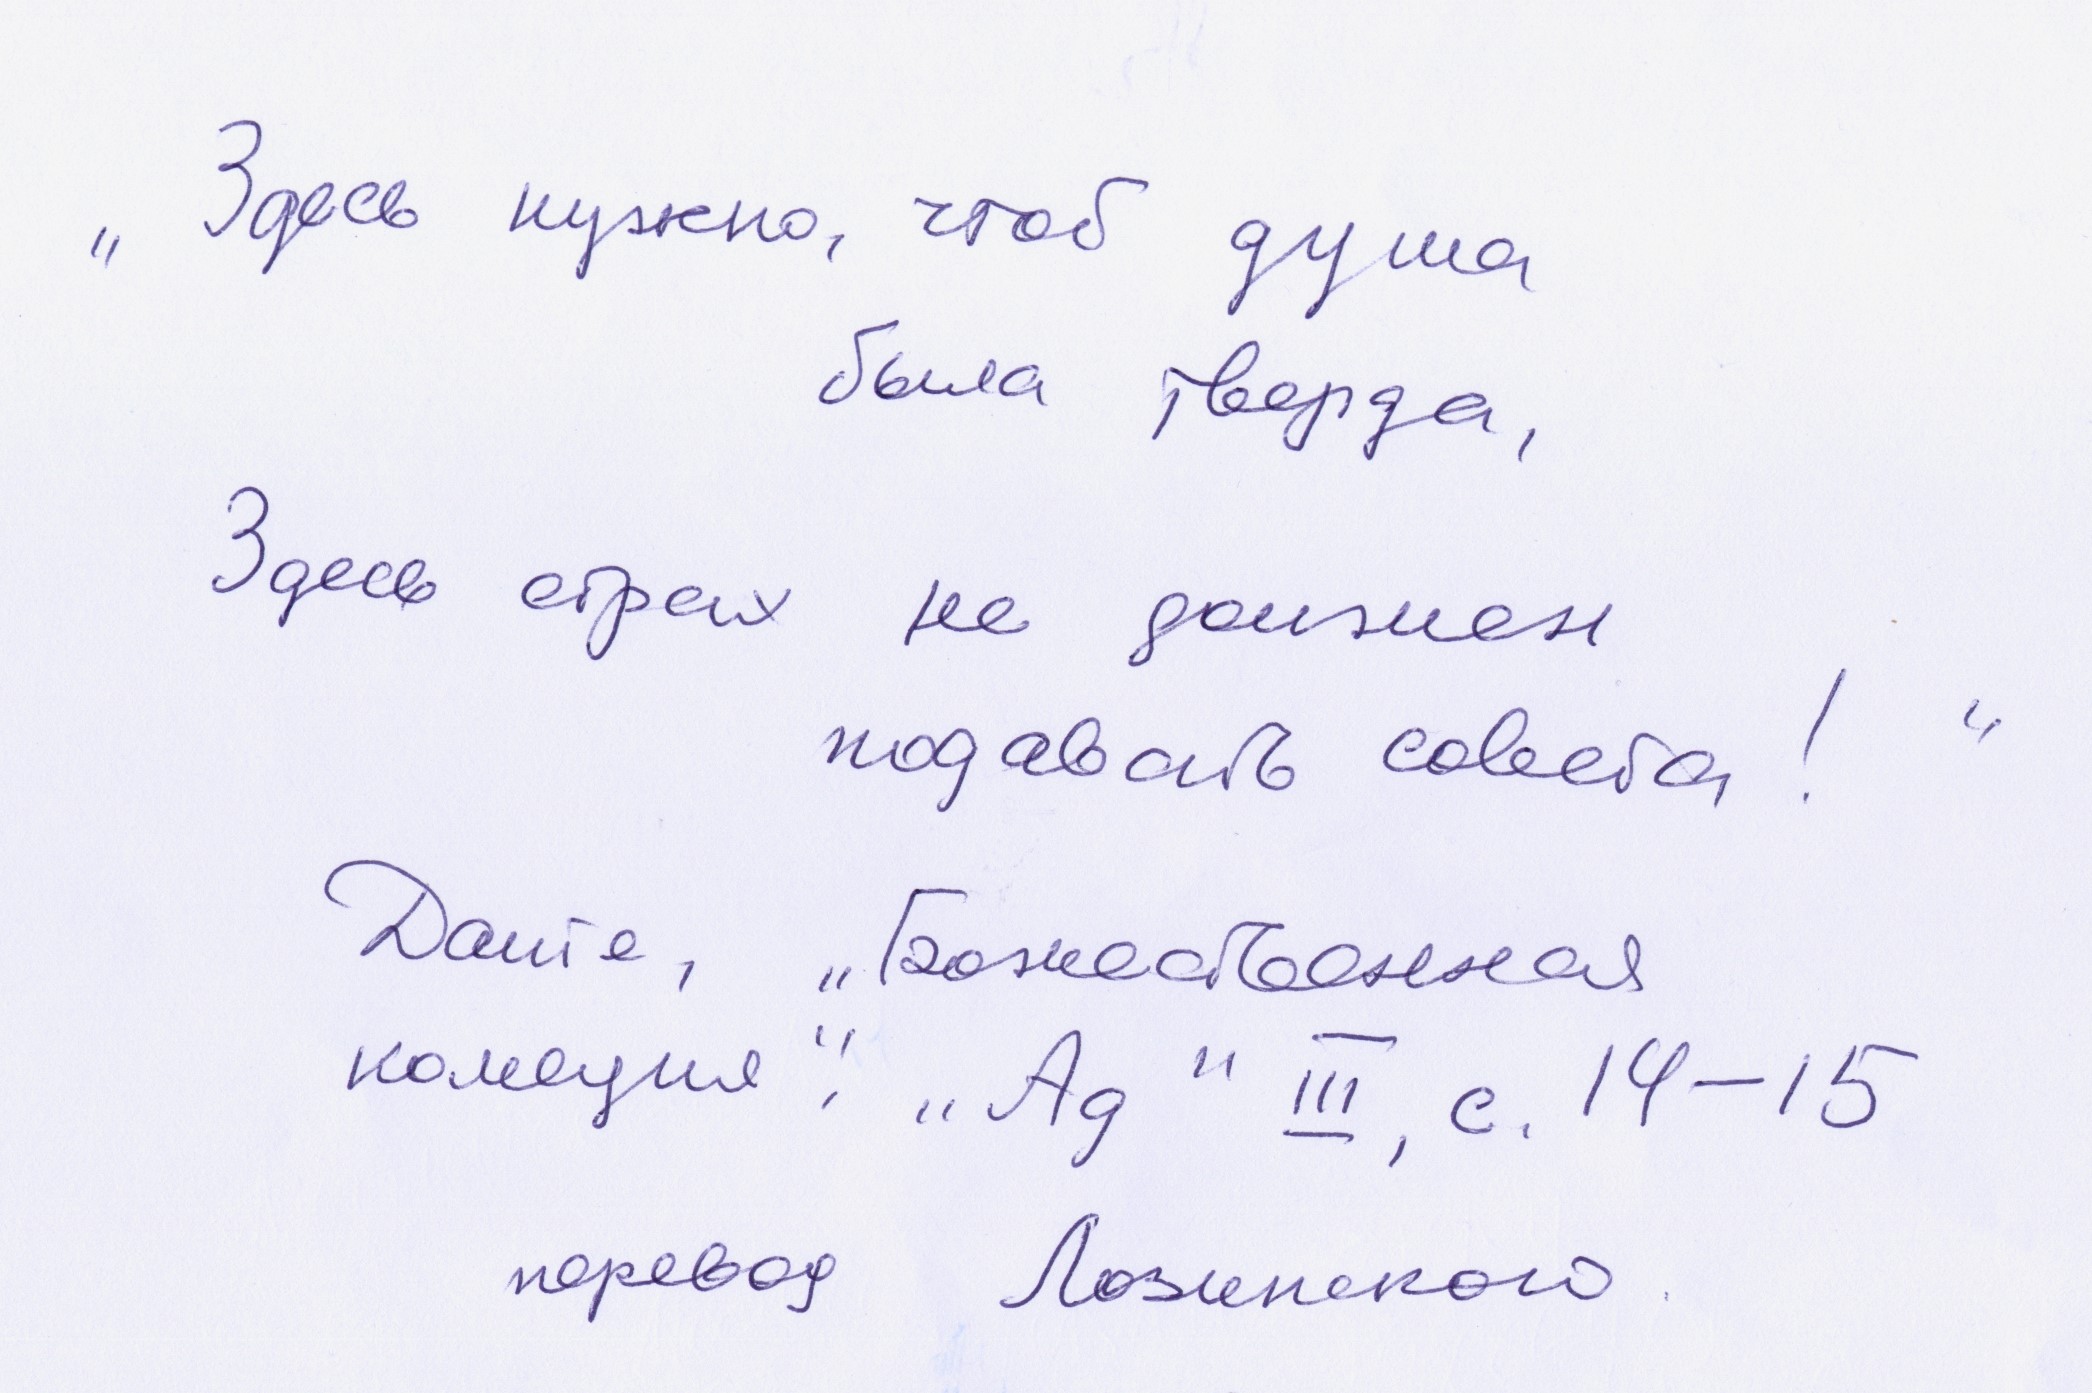 „Здесь нужно, чтоб душа
была тверда,
Здесь страх не должен
подавать совета!“
Данте, „Божественная
комедия“. „Ад“ III, с. 14–15
перевод Лозинского.